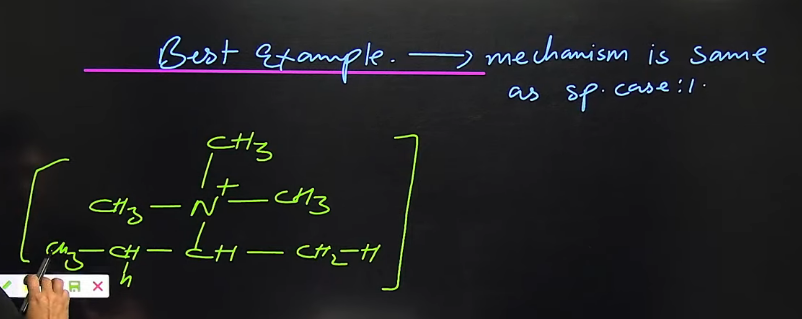 Best Example. → mechanism is same
as sp. case:1.
CH3
CH3 — N+ — CH3
CH3 — CH — CH — CH2—H
h